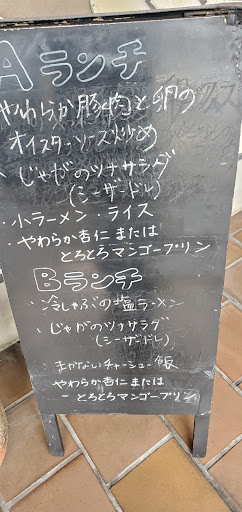 Aランチ
やわらか豚肉と卵の
オイスターソース炒め
・じゃがのツナサラダ
(シーザードレ)
・小ラーメン・ライス
・やわらか杏仁または
とろとろマンゴープリン
Bランチ
・冷しゃぶの塩ラーメン
・じゃがのツナサラダ
(シーザードレ)
・まかないチャーシュー飯
やわらか杏仁または
とろとろマンゴープリン